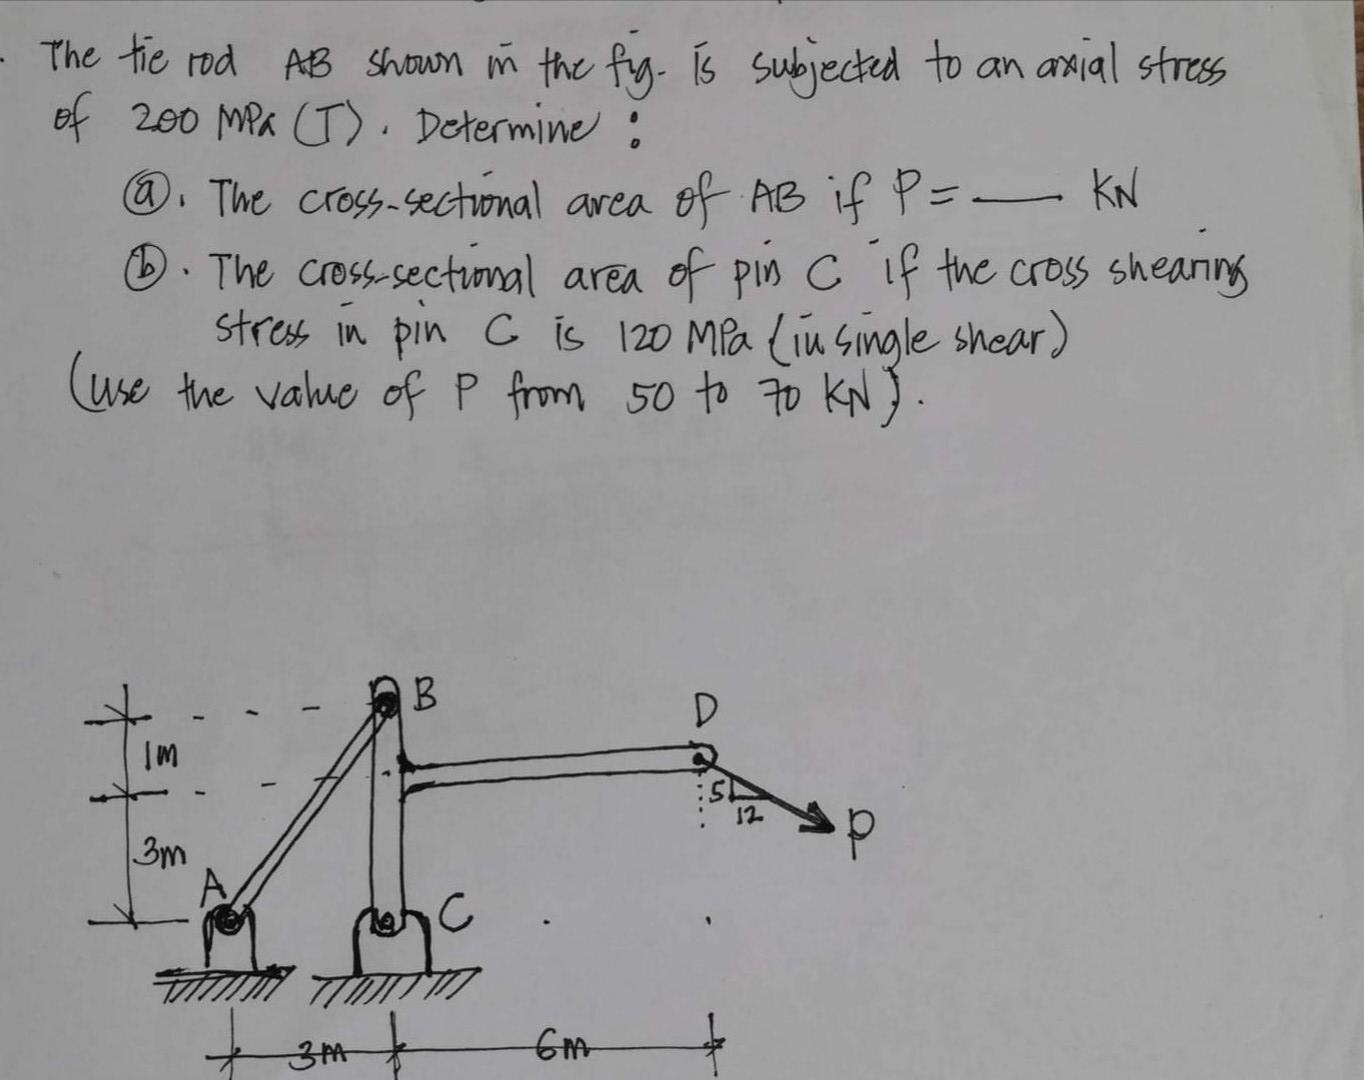 The tie rod AB shown in the fig. is subjected to an axial stress
of 200 MPa (T). Determine :
(a). The cross-sectional area of AB if P = ___ KN
(b). The cross-sectional area of pin C if the cross shearing
stress in pin C is 120 MPa (in single shear)
(use the value of P from 50 to 70 KN).
B
D
1m
5
12
P
3m
A
C
3m
6m